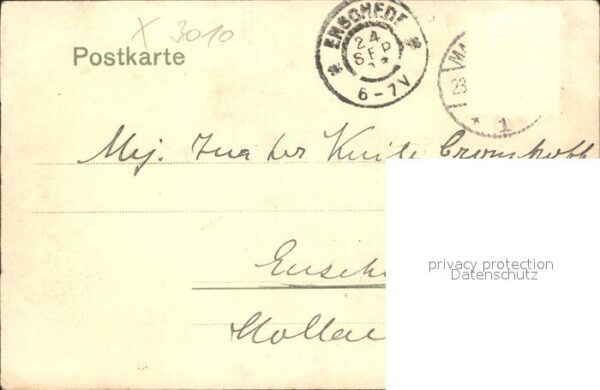 X 3010
Postkarte
ENSCHEDE
24
SEP
6-7V
MA
23
* 1
Mej. Ina ter Kuile Cromhoff
Ensch
Holla
privacy protection
Datenschutz